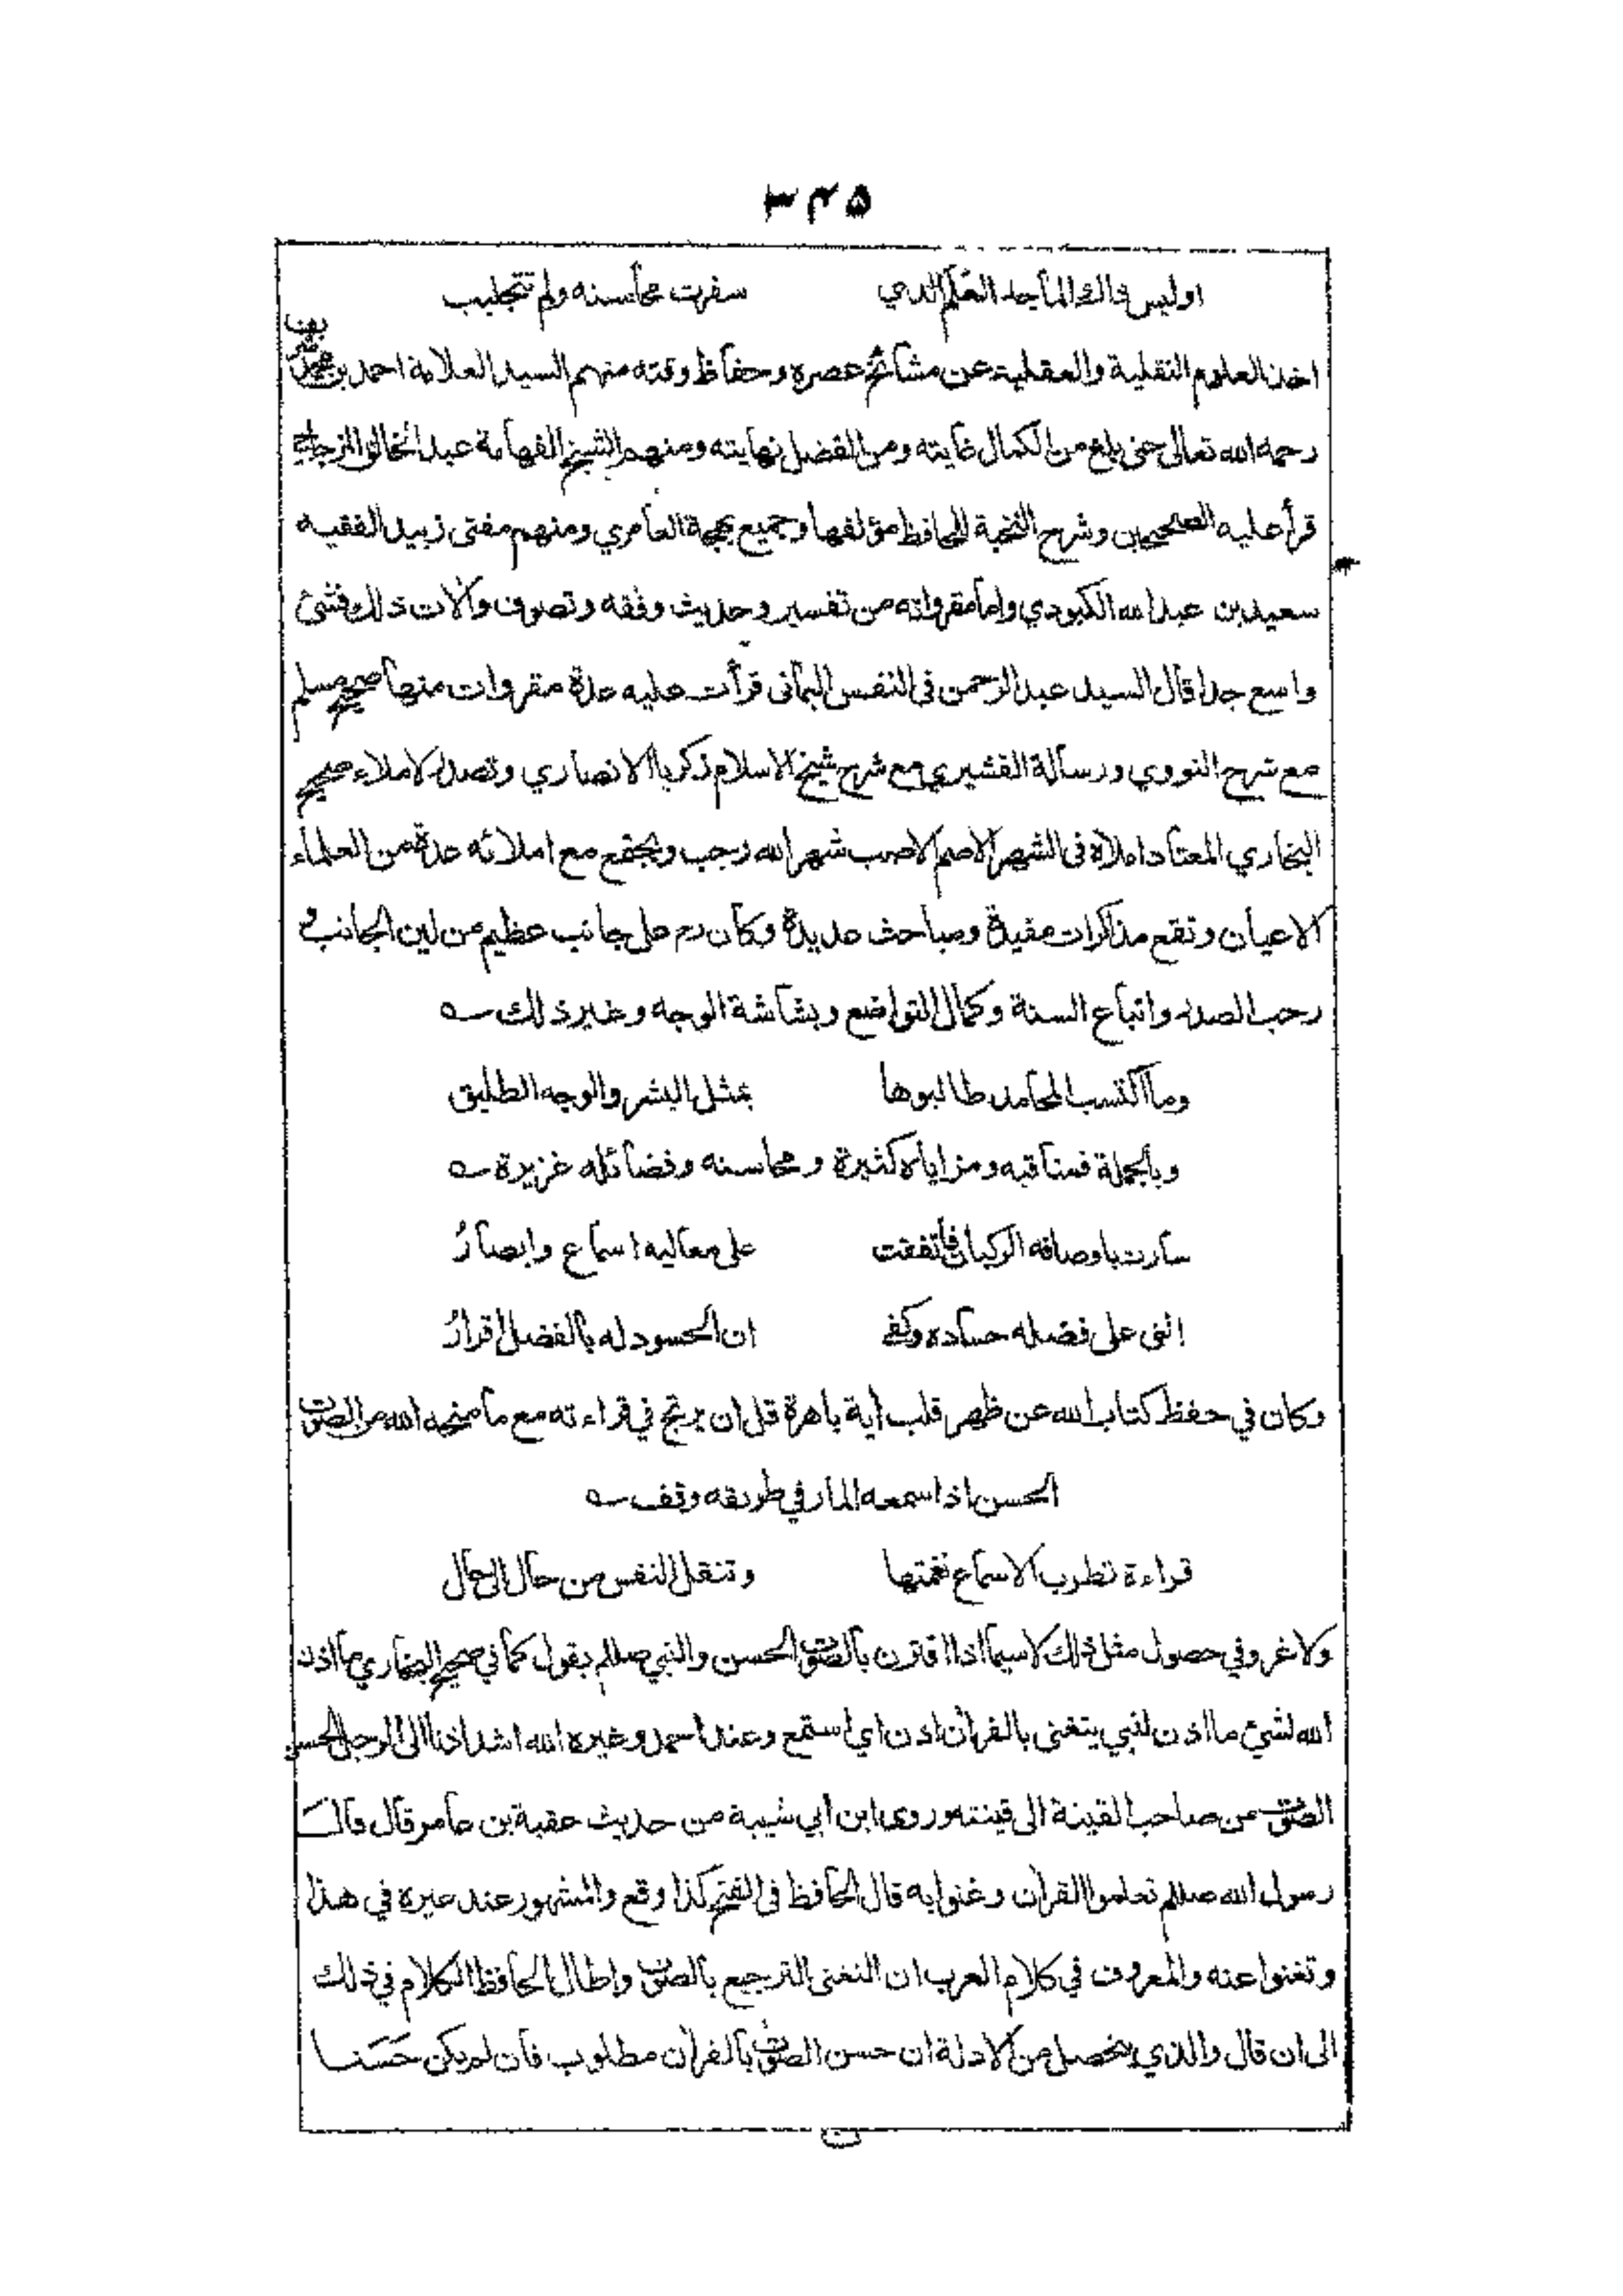 ۳۴۵
اوليس ذالك الماجد العلم الذي سفرت محاسنه ولم تتجلبب
اخذ العلوم النقلية والعقلية عن مشائخ عصره وحفاظ وقته منهم السيد العلامة احمد بن محمد
رحمه الله تعالى حتى بلغ من الكمال غايته ومن الفضل نهايته ومنهم الشيخ الفهامة عبد الخالق المزجاجي
قرأ عليه الصحيحين وشرح النخبة للحافظ مؤلفها وجميع بهجة العامري ومنهم مفتى زبيد الفقيه
سعيد بن عبد الله الكبودي واما مقرواته من تفسير وحديث وفقه وتصوف وآلات ذلك فشئ
واسع جدا قال السيد عبد الرحمن فى النفس اليمانى قرأت عليه عدة مقروات منها صحيح مسلم
مع شرح النووي ورسالة القشيري مع شرح شيخ الاسلام زكريا الانصاري وتصدر لاملاء صحيح
البخاري المعتاد املاؤه فى الشهر الاصم الاصب شهر الله رجب ويجتمع مع املائه عدة من العلماء
الاعيان وتقع مذاكرات مفيدة ومباحث عديدة وكان رح على جانب عظيم من لين الجانب و
رحب الصدر واتباع السنة وكمال التواضع وبشاشة الوجه وغير ذلك ــه
وما اكتسب المحامد طالبوها بمثل البشر والوجه الطليق
وبالجملة فمناقبه ومزاياه كثيرة ومحاسنه وفضائله غزيرة ــه
سارت باوصافه الركبان فاتفقت على معاليه اسماع وابصارُ
اثنى على فضله حساده وكفى ان الحسود له بالفضل اقرارُ
وكان في حفظ كتاب الله عن ظهر قلب آية باهرة قل ان يرتج في قراءته مع ما منحه الله من الصوت
الحسن اذا سمعه المار في طريقه وقف ــه
قراءة تطرب الاسماع نغمتها وتنقل النفس من حال الى حال
ولا غرو في حصول مثل ذلك لا سيما اذا اقترن بالصوت الحسن والنبي صللم يقول كما في صحيح البخاري ما اذن
الله لشيئ ما اذن لنبي يتغنى بالقرآن اذن اي استمع وعند احمد وغيره الله اشد اذنا الى الرجل الحسن
الصوت من صاحب القينة الى قينته وروى ابن ابي شيبة من حديث عقبة بن عامر قال قال
رسول الله صللم تعلموا القرآن وغنوا به قال الحافظ فى الفتح كذا وقع والمشهور عند غيره في هذا
وتغنوا عنه والمعروف في كلام العرب ان التغنى الترجيع بالصوت واطال الحافظ الكلام في ذلك
الى ان قال والذي يتحصل من الادلة ان حسن الصوت بالقرآن مطلوب فان لم يكن حَسَنا